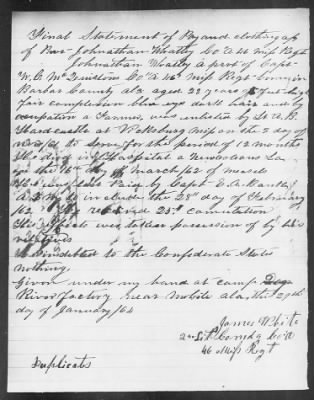 Final Statement of Pay and clothing ap
of Prvt Johnathan Whatley Co A 46 Miss Regt
Johnathan Whatley a prvt of Capt
W. C. McQuistons Co A 46 Miss Regt born in
Barbor County ala aged 22 years 5 feet high
Fair complexion blue eye dark hair and by
occupation a Farmer, was enlisted by Lt A. B.
Hardcastle at Vicksburg Miss on the 3 day of
to serve for the period of 12 months
He died in Hospital a New orleans La
on the 16th day of March /62 of measels
He was last Paid by Capt E. A.
A. Q. M. to include the 28th day of February
/62 25$ comutation
His effects were taken possession of by his
relatives
Is indebted to the Confederate States
nothing
Given under my hand at camp Dog
River factory near Mobile ala, the 29th
day of January /64
James White
2nd Lt Comdg Co A
46 Miss Regt
Duplicate